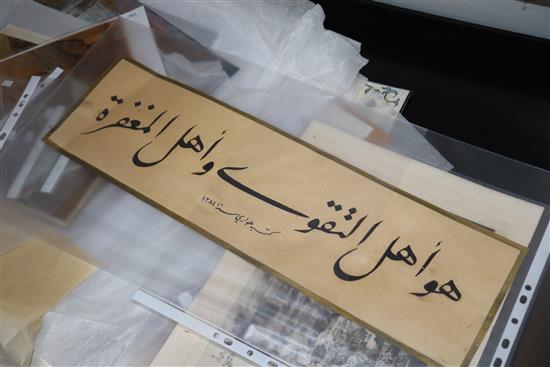 هو أهل التقوى وأهل المغفرة
كتبه هواري سنة ١٣٨٤